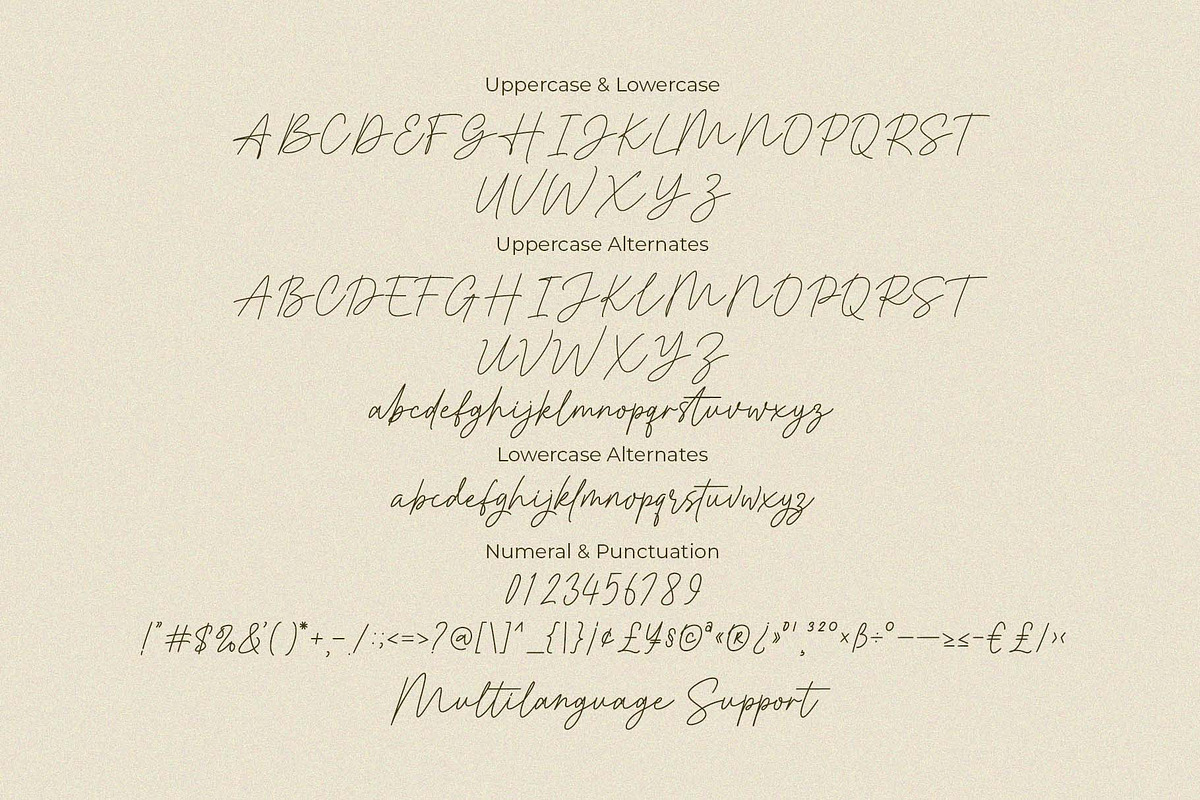 Uppercase & Lowercase
ABCDEFGHIJKLMNOPQRST
UVWXYZ
Uppercase Alternates
ABCDEFGHIJKLMNOPQRST
UVWXYZ
abcdefghijklmnopqrstuvwxyz
Lowercase Alternates
abcdefghijklmnopqrstuvwxyz
Numeral & Punctuation
0123456789
!"#$%&'()*+,-./:;<=>?@[\]^_{|}¡¢£¥§©ª«®¿»⁰¹¸³²⁰×ß÷°–—≥≤-€₤/›‹
Multilanguage Support